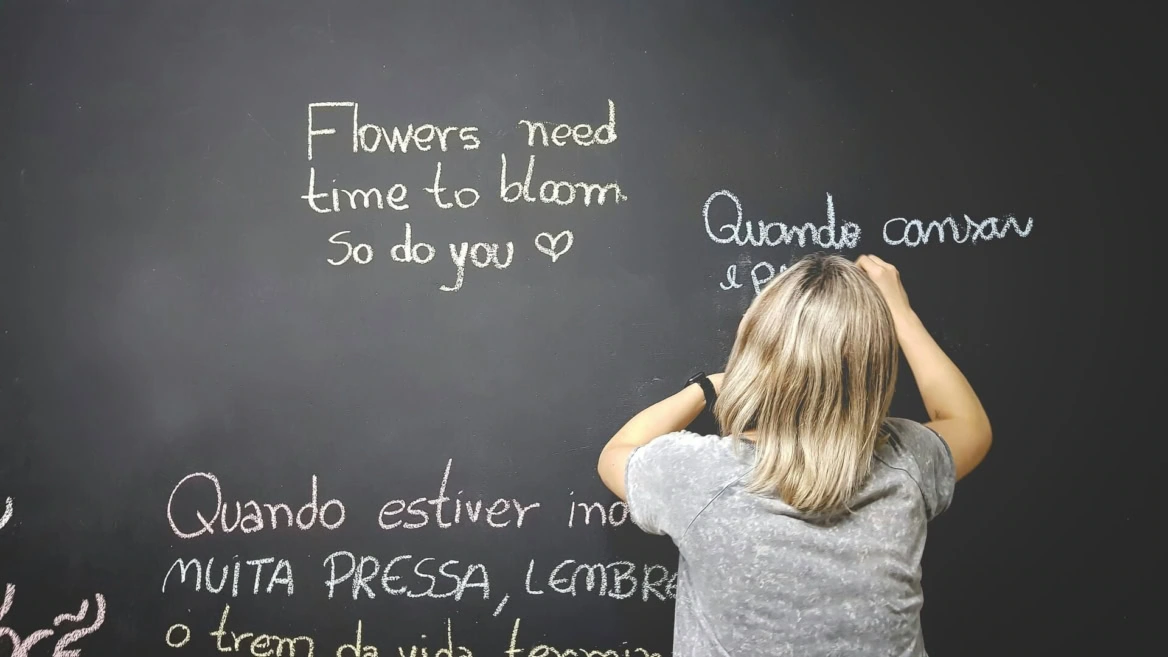 Flowers need
time to bloom
So do you ♡
Quando cansar
e
Quando estiver
MUITA PRESSA,
o trem da vida